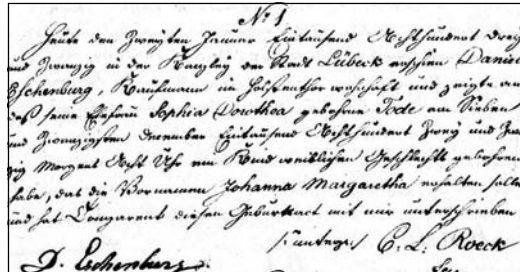 No 1
Heute den Zweyten Januar Eintausend Achthundert drey
und Zwanzig in der Kanzley der Stadt Lübeck erschien Daniel
Eschenburg, Kaufmann im Holstenthor wohnhaft und zeigte an
daß seine Ehefrau Sophia Dorothea gebohrne Tode am Sieben
und Zwanzigsten December Eintausend Achthundert Zwey und Zwan
zig Morgens Acht Uhr ein Kind weiblichen Geschlechts gebohren
habe, das die Vornamen Johanna Margaretha erhalten solle
und hat Comparent diesen Geburtsact mit mir unterschrieben
C. L. Roeck
D. Eschenburg